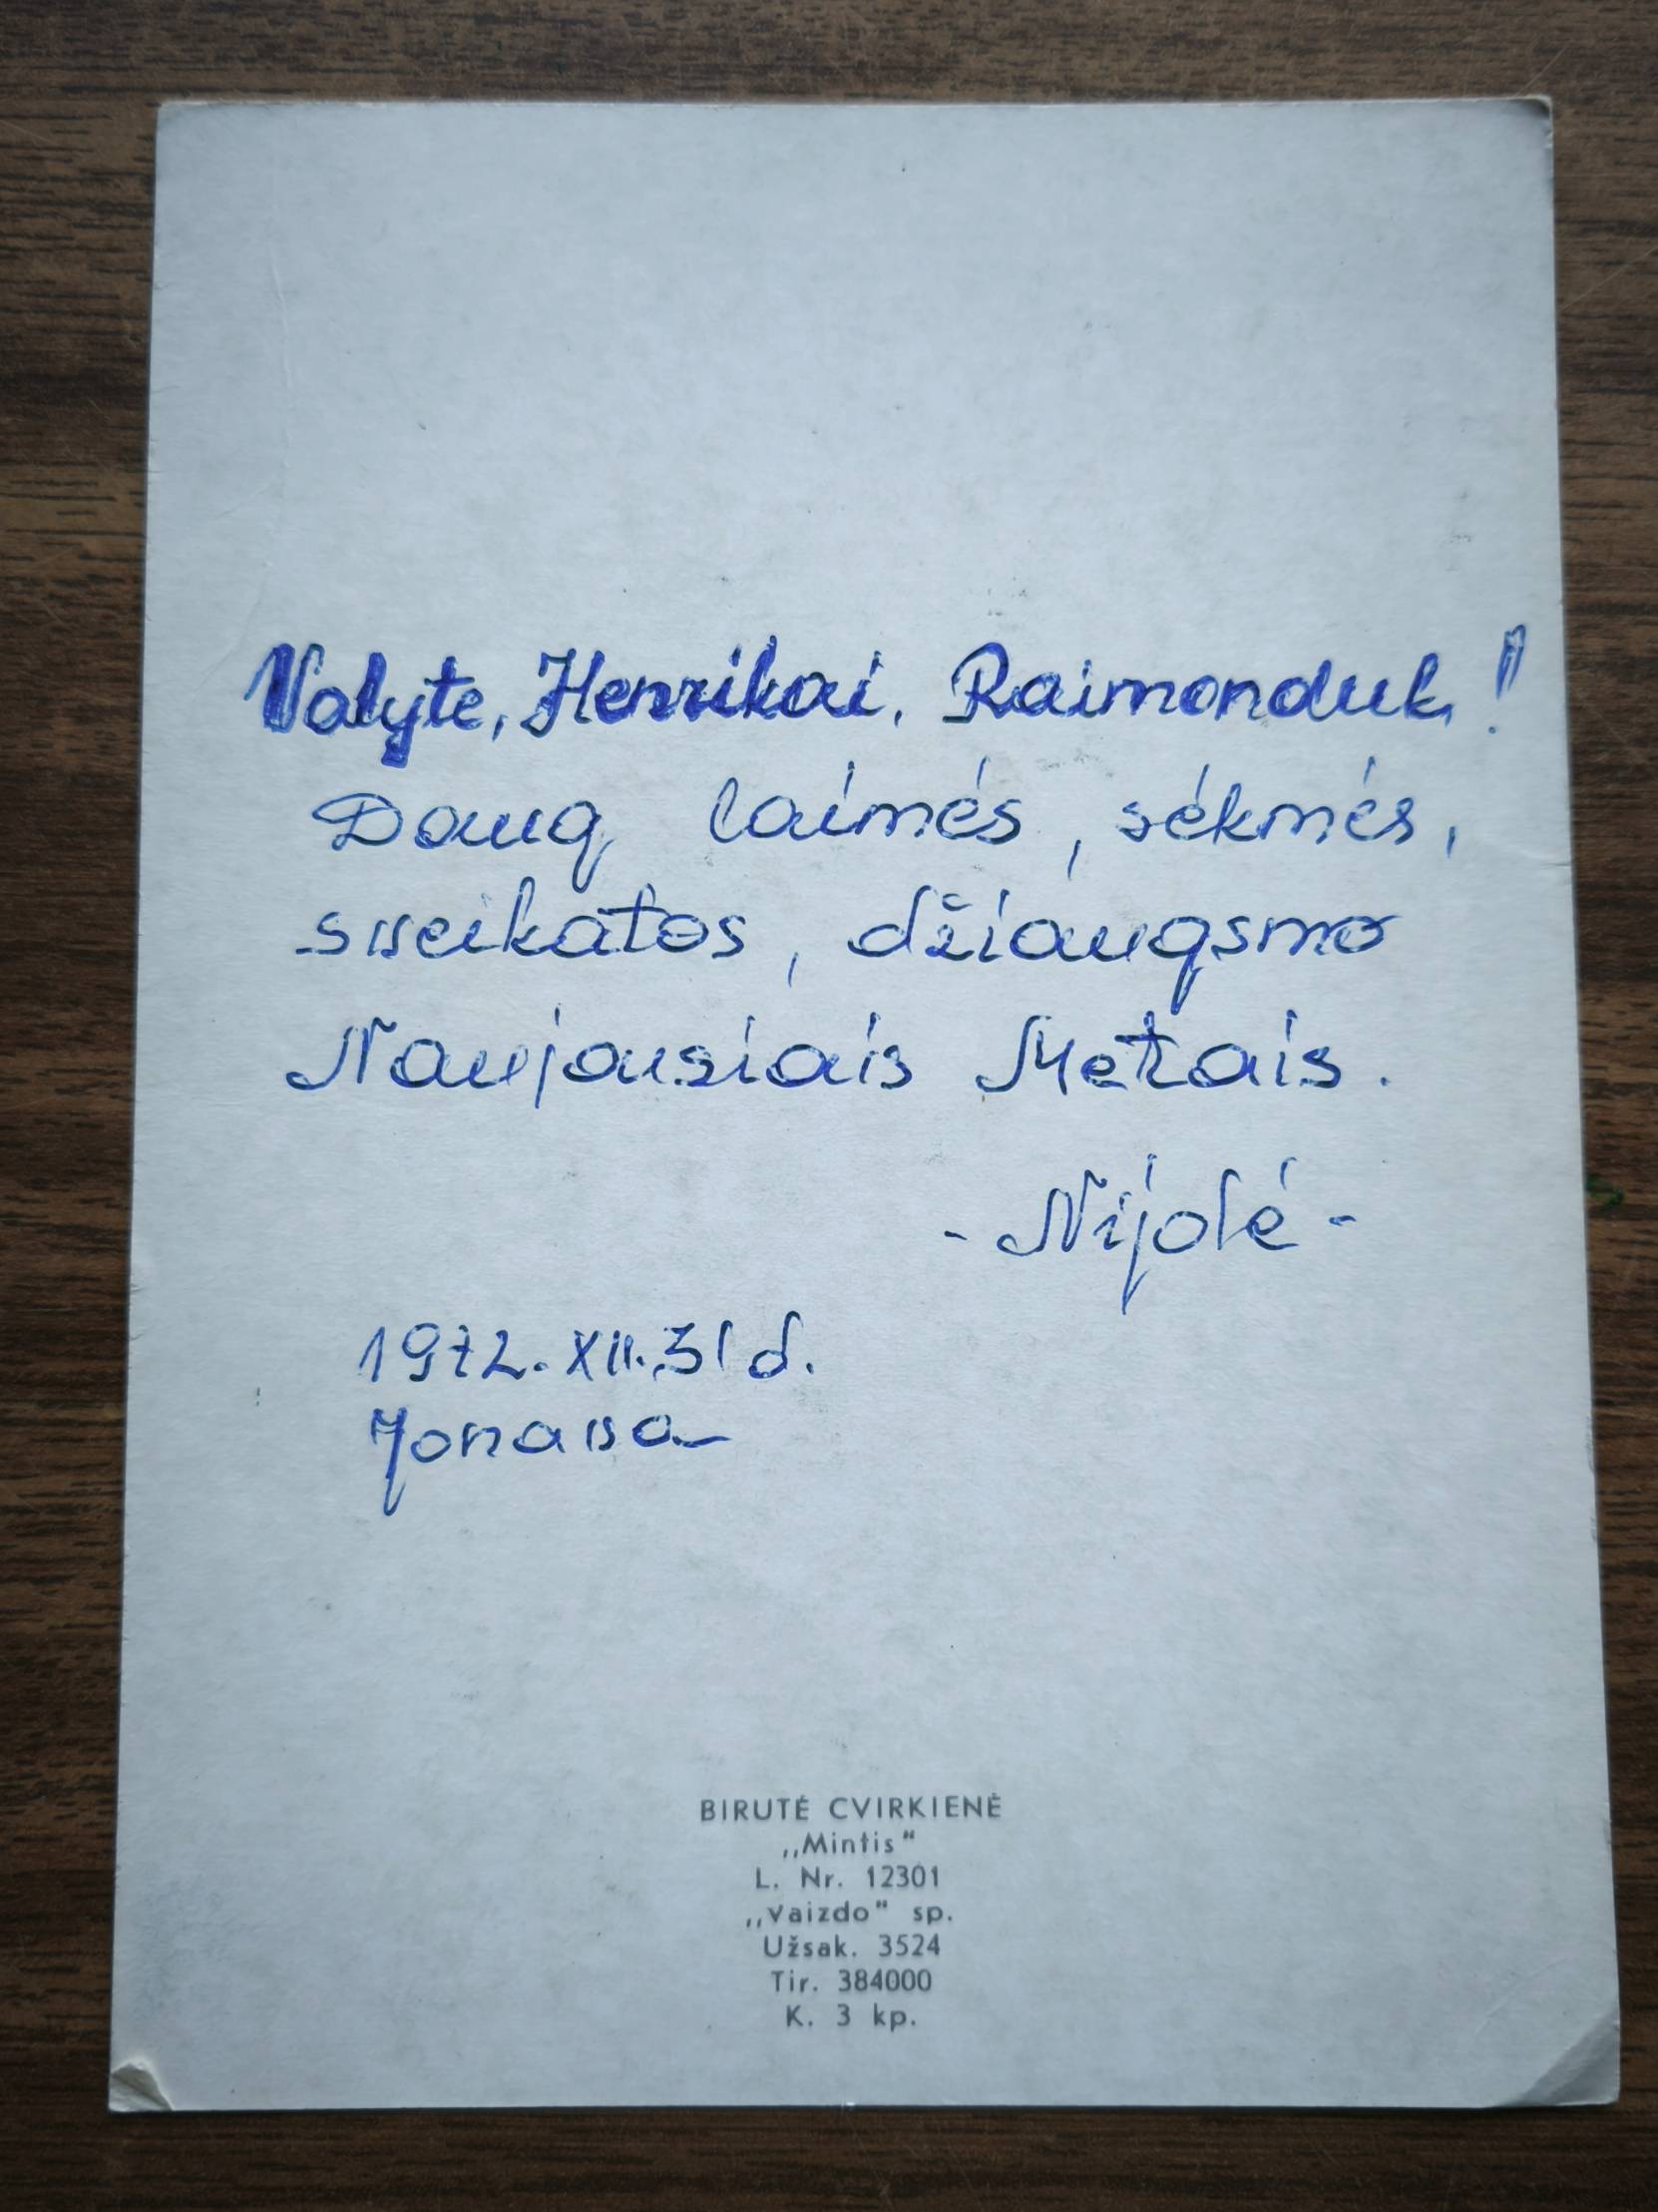 Valyte, Henrikai, Raimonduk!
Daug laimės, sėkmės,
sveikatos, džiaugsmo
Naujausiais Metais.
- Nijolė -
1972. XII. 31 d.
Jonava
BIRUTĖ CVIRKIENĖ
„Mintis“
L. Nr. 12301
„Vaizdo“ sp.
Užsak. 3524
Tir. 384000
K. 3 kp.